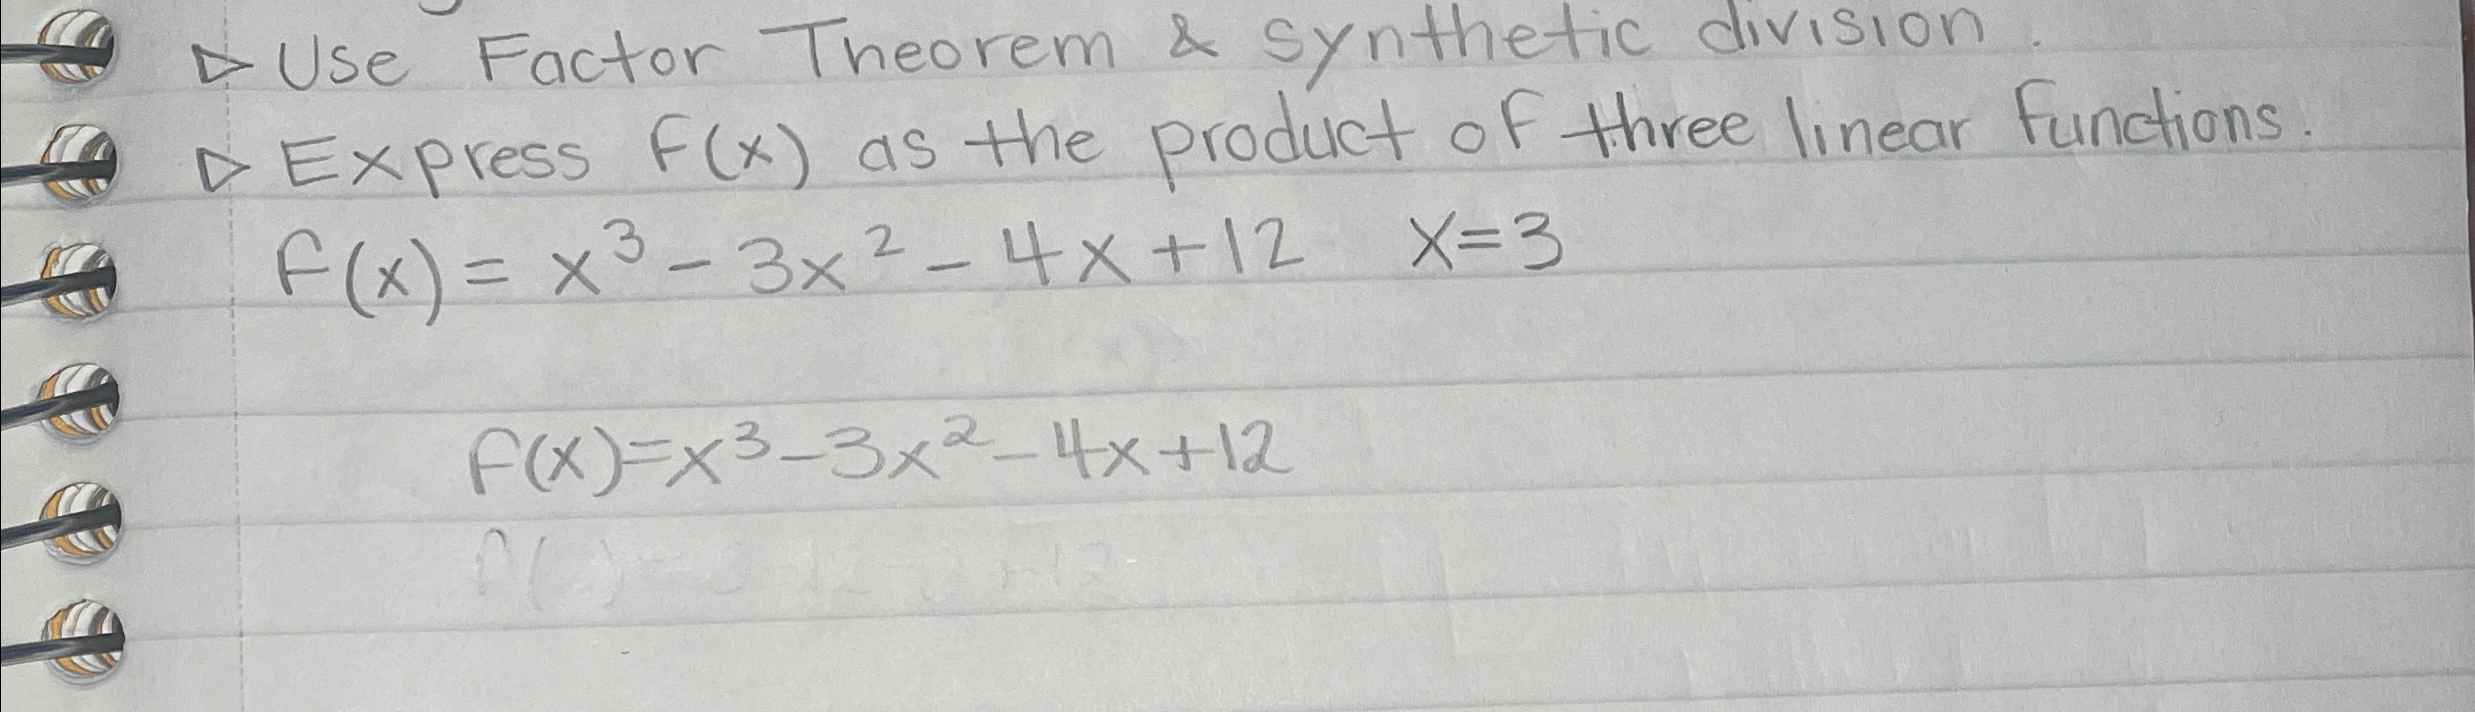 ▷ Use Factor Theorem & synthetic division.
▷ Express f(x) as the product of three linear functions.
f(x) = x³ - 3x² - 4x + 12   x = 3
f(x) = x³ - 3x² - 4x + 12